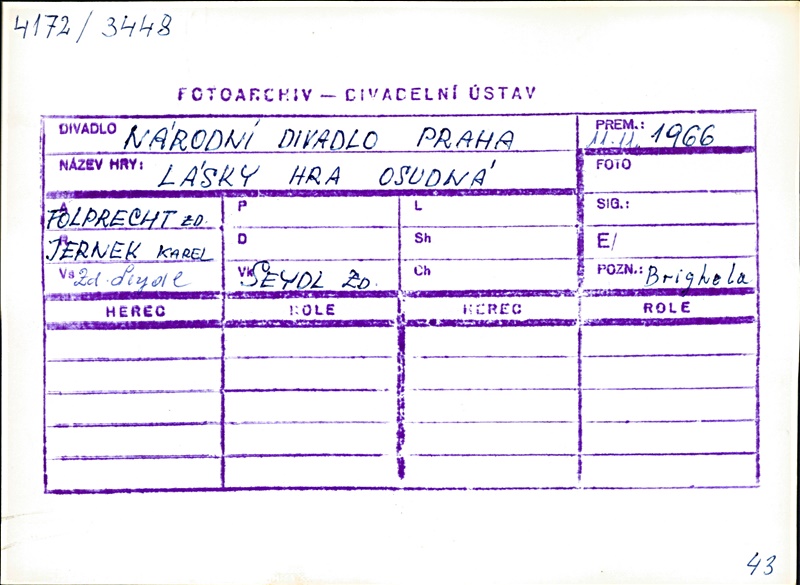 4172/3448
FOTOARCHIV — DIVADELNÍ ÚSTAV
DIVADLO NÁRODNÍ DIVADLO PRAHA PREM.: 11.11. 1966
NÁZEV HRY: LÁSKY HRA OSUDNÁ FOTO
A FOLPRECHT ZD. P L SIG.:
R JERNEK KAREL D Sh E/
Vs Zd. Seydl Vk SEYDL ZD. Ch POZN.: Brighela
HEREC ROLE HEREC ROLE
43